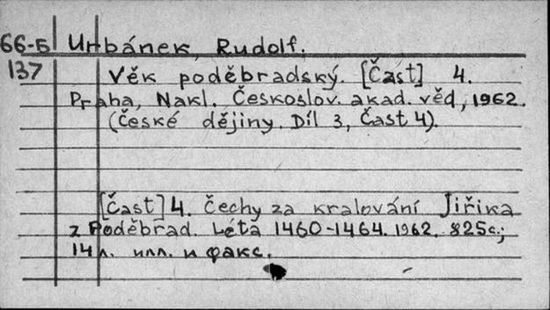 66-5 Urbánek, Rudolf.
137 Věk poděbradský. [Část] 4.
Praha, Nakl. Českoslov. akad. věd, 1962.
(České dějiny. Díl 3, Část 4).
[Část] 4. Čechy za kralování Jiříka
z Poděbrad. Léta 1460-1464. 1962. 825с.;
14 л. илл. и факс.